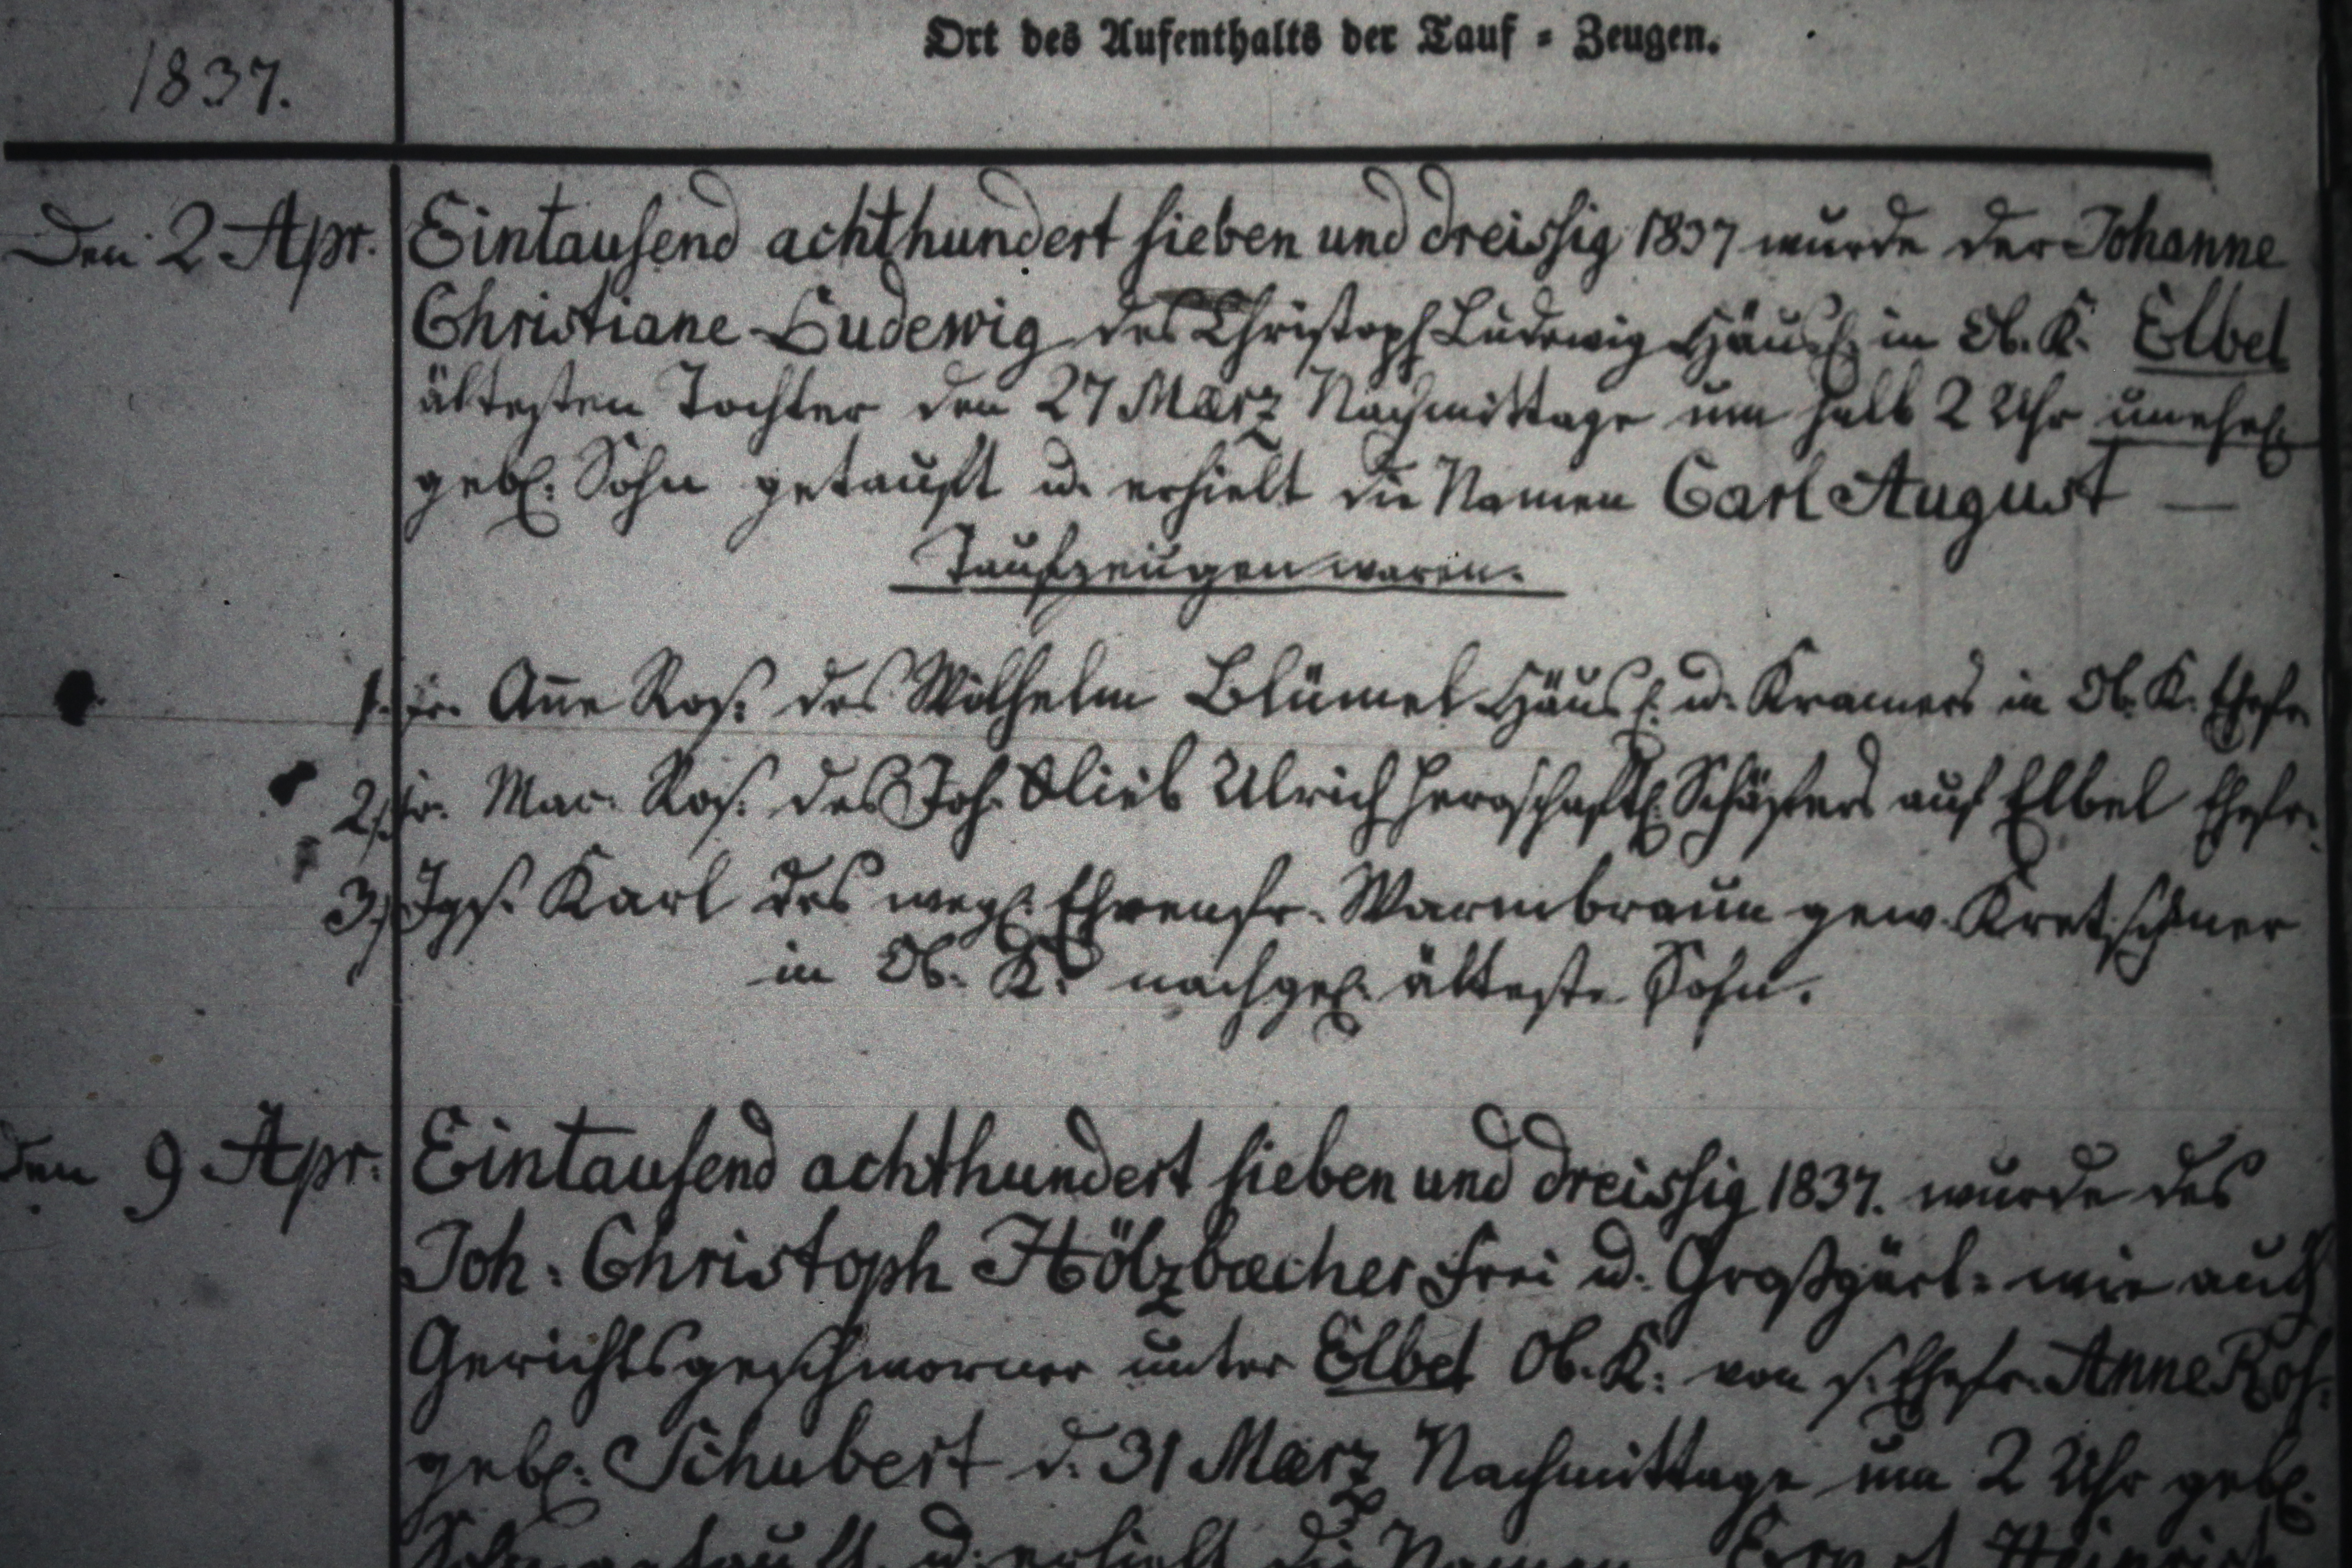 Ort des Aufenthalts der Tauf = Zeugen.
1837.
Den 2 Apr. Eintausend achthundert sieben und dreissig 1837 wurde der Johanne
Christiane Ludewig des Christoph Ludewig Häusl. in Ob. K. Elbel
ältesten Tochter den 27 Maerz Nachmittags um halb 2 Uhr unehel.
gebl. Sohn getauft u. erhielt die Namen Carl August —
Taufzeugen waren.
1. Fr. Anne Ros. des Wilhelm Blümel Häusl. u. Kramers in Ob. K. Ehefr.
2, Fr. Mar. Ros. des Joh. Glieb Ulrich herrschaftl. Schäfers auf Elbel Ehefr.
3, Jgs. Karl des wegl. Ehrenfr. Warmbraun gew. Kretschmer
in Ob. K. nachgel. älteste Sohn.
Den 9 Apr. Eintausend achthundert sieben und dreissig 1837. wurde des
Joh. Christoph Hölzbecher Frei u. Großgärt. wie auch
Gerichtsgeschworner unter Elbel Ob. K. von s. Ehefr. Anne Ros.
gebl. Schubert d. 31 Maerz Nachmittags um 2 Uhr gebl.
Sohn getauft u. erhielt die Namen Ernst Heinrich